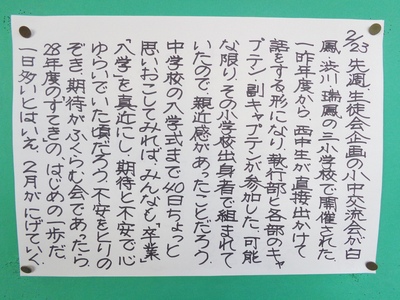 2/23 先週、生徒会企画の小中交流会が白
鳳、渋川、瑞鳳の三小学校で開催された。
一昨年度から、西中生が直接出かけて
話をする形になり、執行部と各部のキャ
プテン・副キャプテンが参加した。可能
な限り、その小学校出身者で組まれて
いたので、親近感があったことだろう。
中学校の入学式まで40日ちょっと
思いおこしてみれば、みんなも「卒業」
「入学」を真近にし、期待と不安で心
ゆらいでいた頃だろう。不安をとりの
ぞき、期待がふくらむ会であったら
28年度のすてきな、はじめの一歩だ。
一日多いとはいえ、2月がにげていく